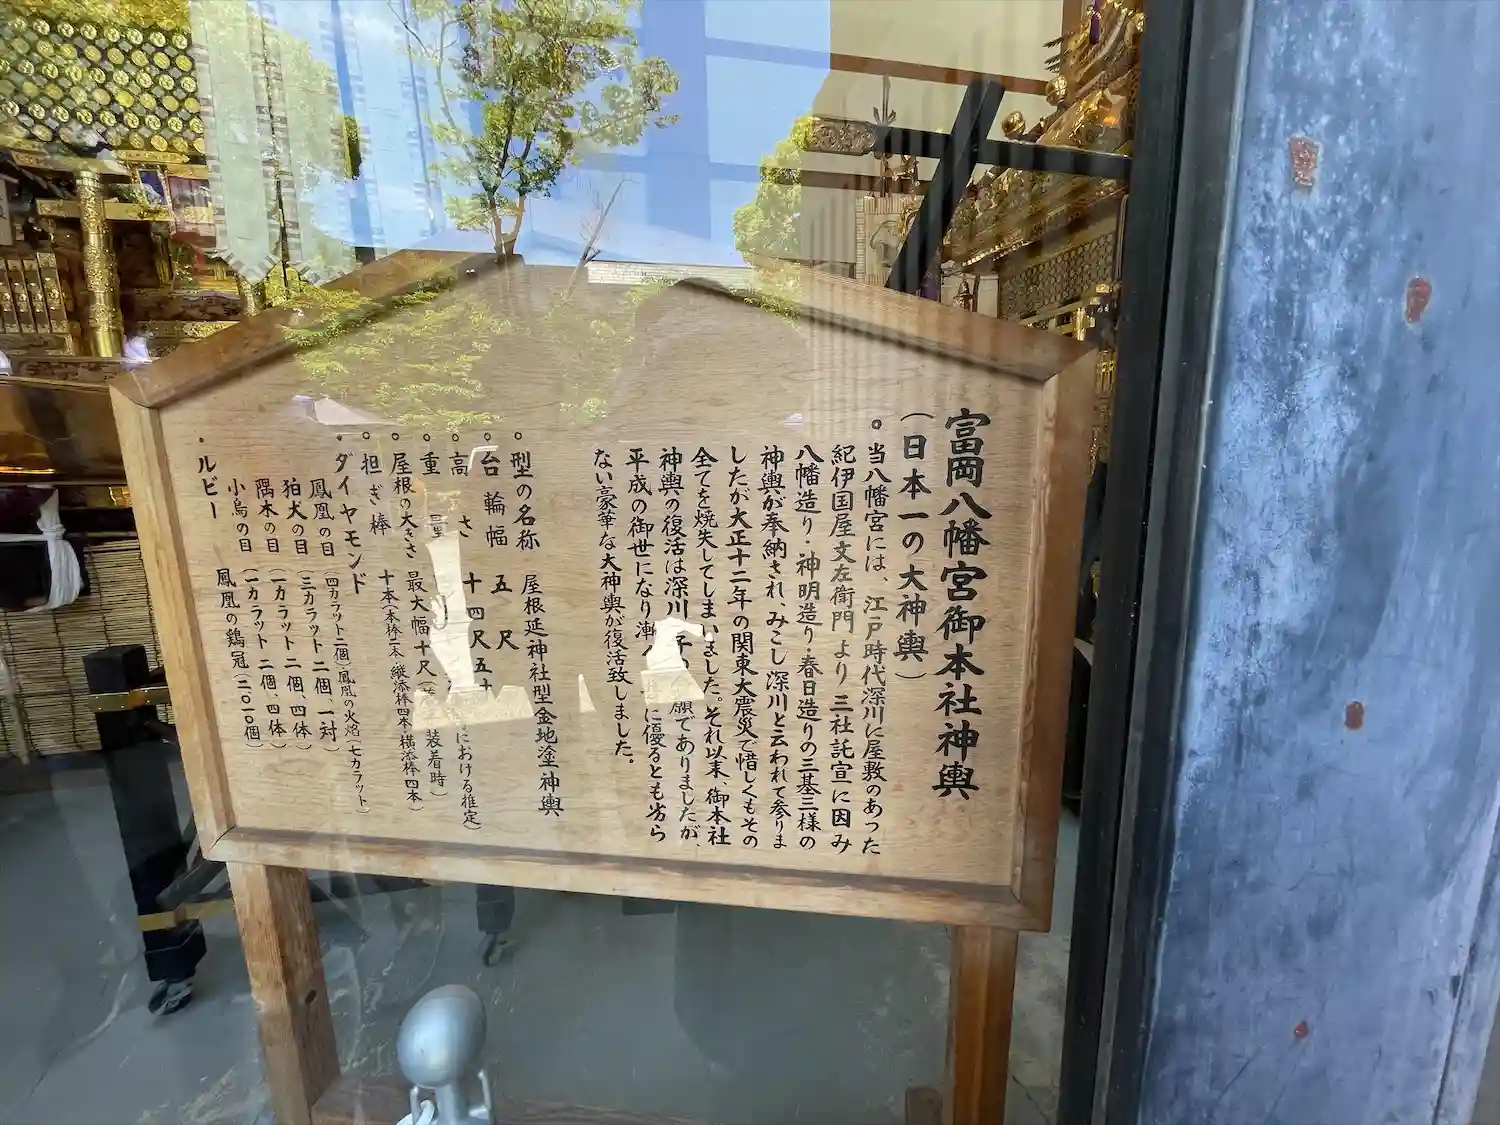 富岡八幡宮御本社神輿
(日本一の大神輿)
。当八幡宮には、江戸時代深川に屋敷のあった
紀伊国屋文左衛門より三社託宣に因み
八幡造り・神明造り・春日造りの三基三様の
神輿が奉納され、みこし深川と云われて参りま
したが大正十二年の関東大震災で惜しくもその
全てを焼失してしまいました。それ以来、御本社
神輿の復活は深川 願でありましたが、
平成の御世になり漸く に優るとも劣ら
ない豪華な大神輿が復活致しました。
。型の名称 屋根延神社型金地塗神輿
。台輪幅 五尺
。高さ 十四尺五寸
。重 における推定)
。屋根の大きさ 最大幅十尺 装着時)
。担ぎ棒 十本(本棒二本 縦添棒四本 横添棒四本)
・ダイヤモンド
鳳凰の目 (四カラット二個)鳳凰の火焔(七カラット)
狛犬の目 (三カラット 二個、一対)
隅木の目 (一カラット 二個、四体)
小鳥の目 (一カラット 二個、四体)
・ルビー 鳳凰の鶏冠(二、〇一〇個)